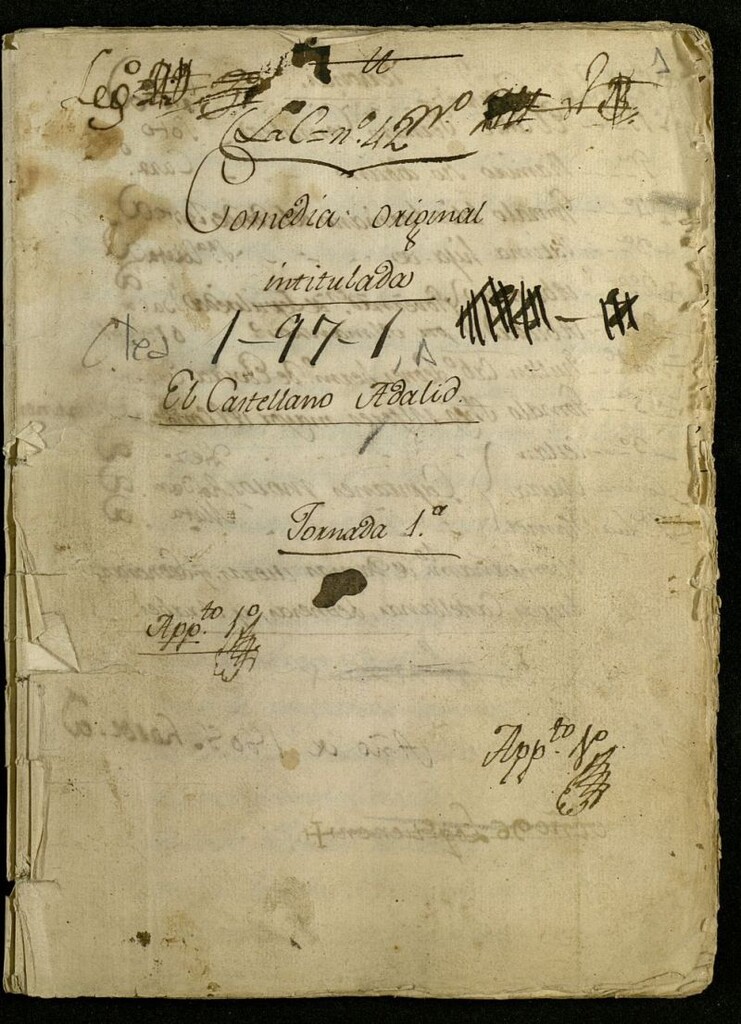 1
Leg.º
La C = nº. 42
Comedia original
intitulada
Tea 1-97-1, A
El Castellano Adalid.
Jornada 1.ª
App.to 1º
App.to 1º